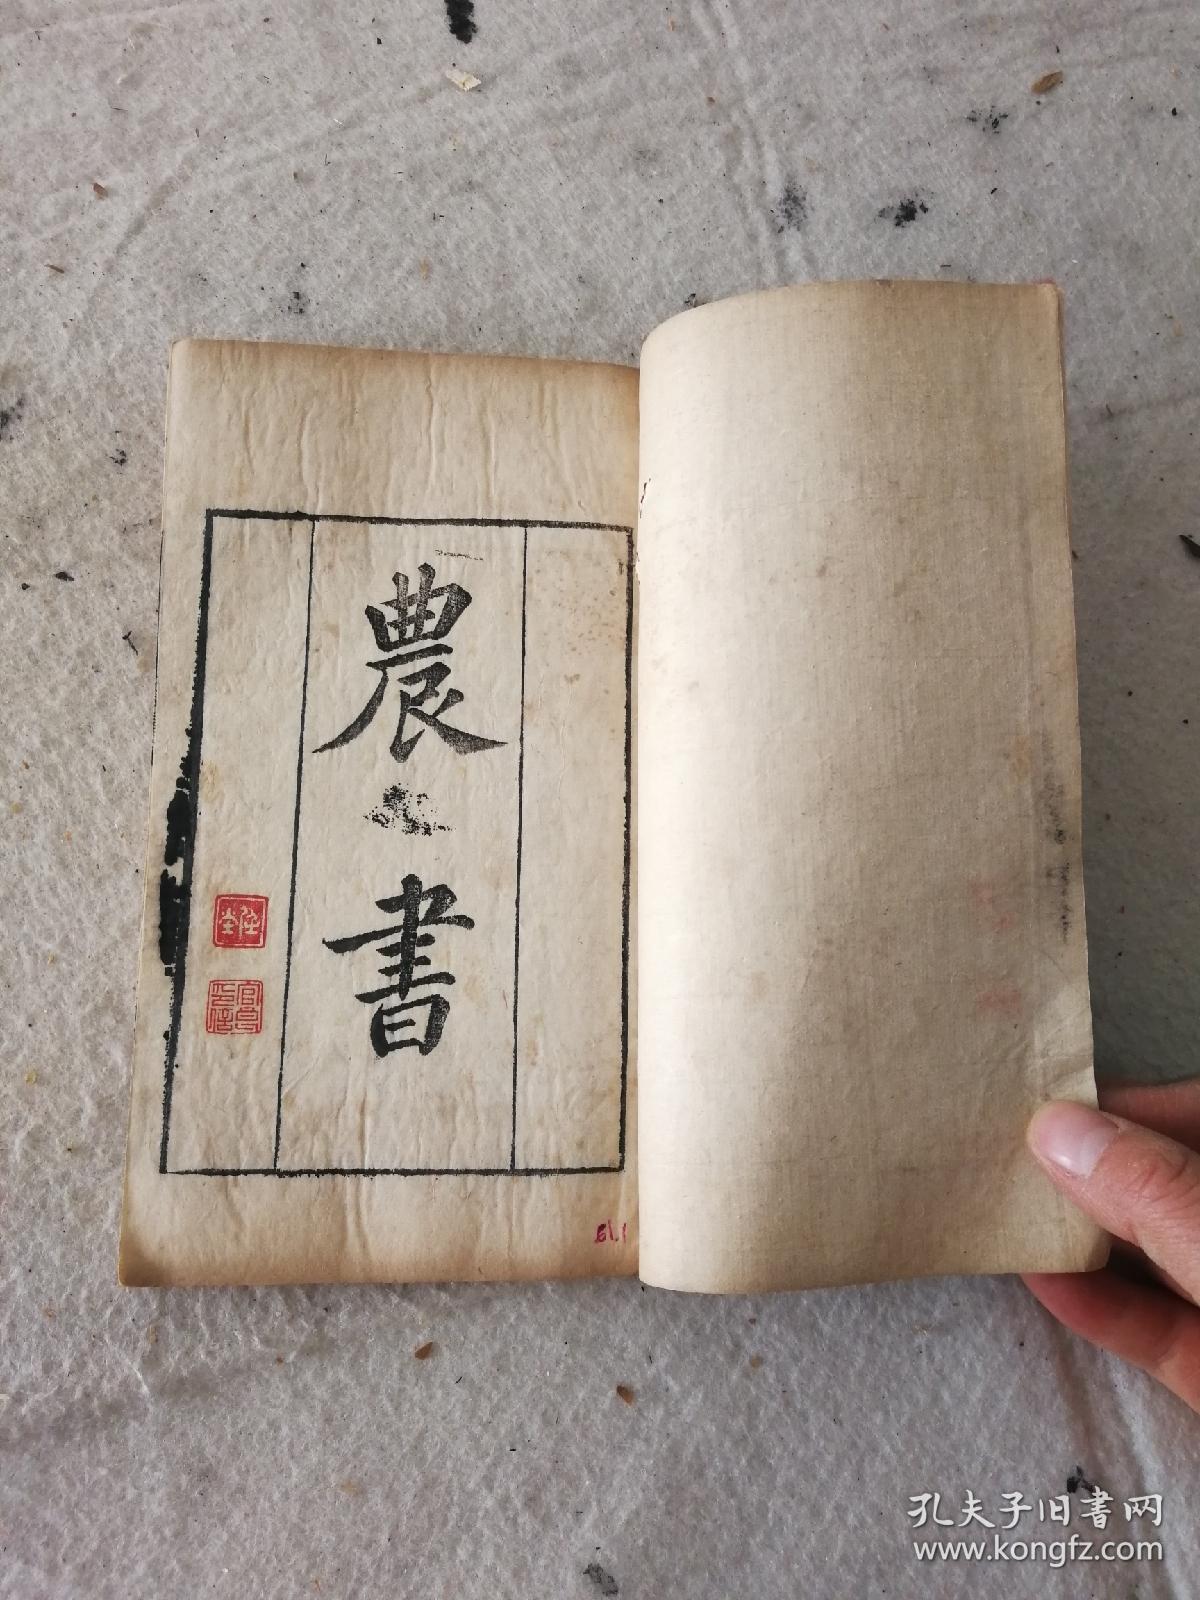 農書
孔夫子旧書网
www.kongfz.com